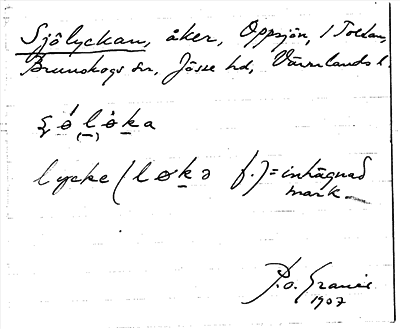 Sjölyckan, åker, Oppsjön, 1 Tolvan,
Brunskogs sn, Jösse hd, Värmlands l.
lycke (løkə f.) = inhägnad
mark.
P.o.
1907